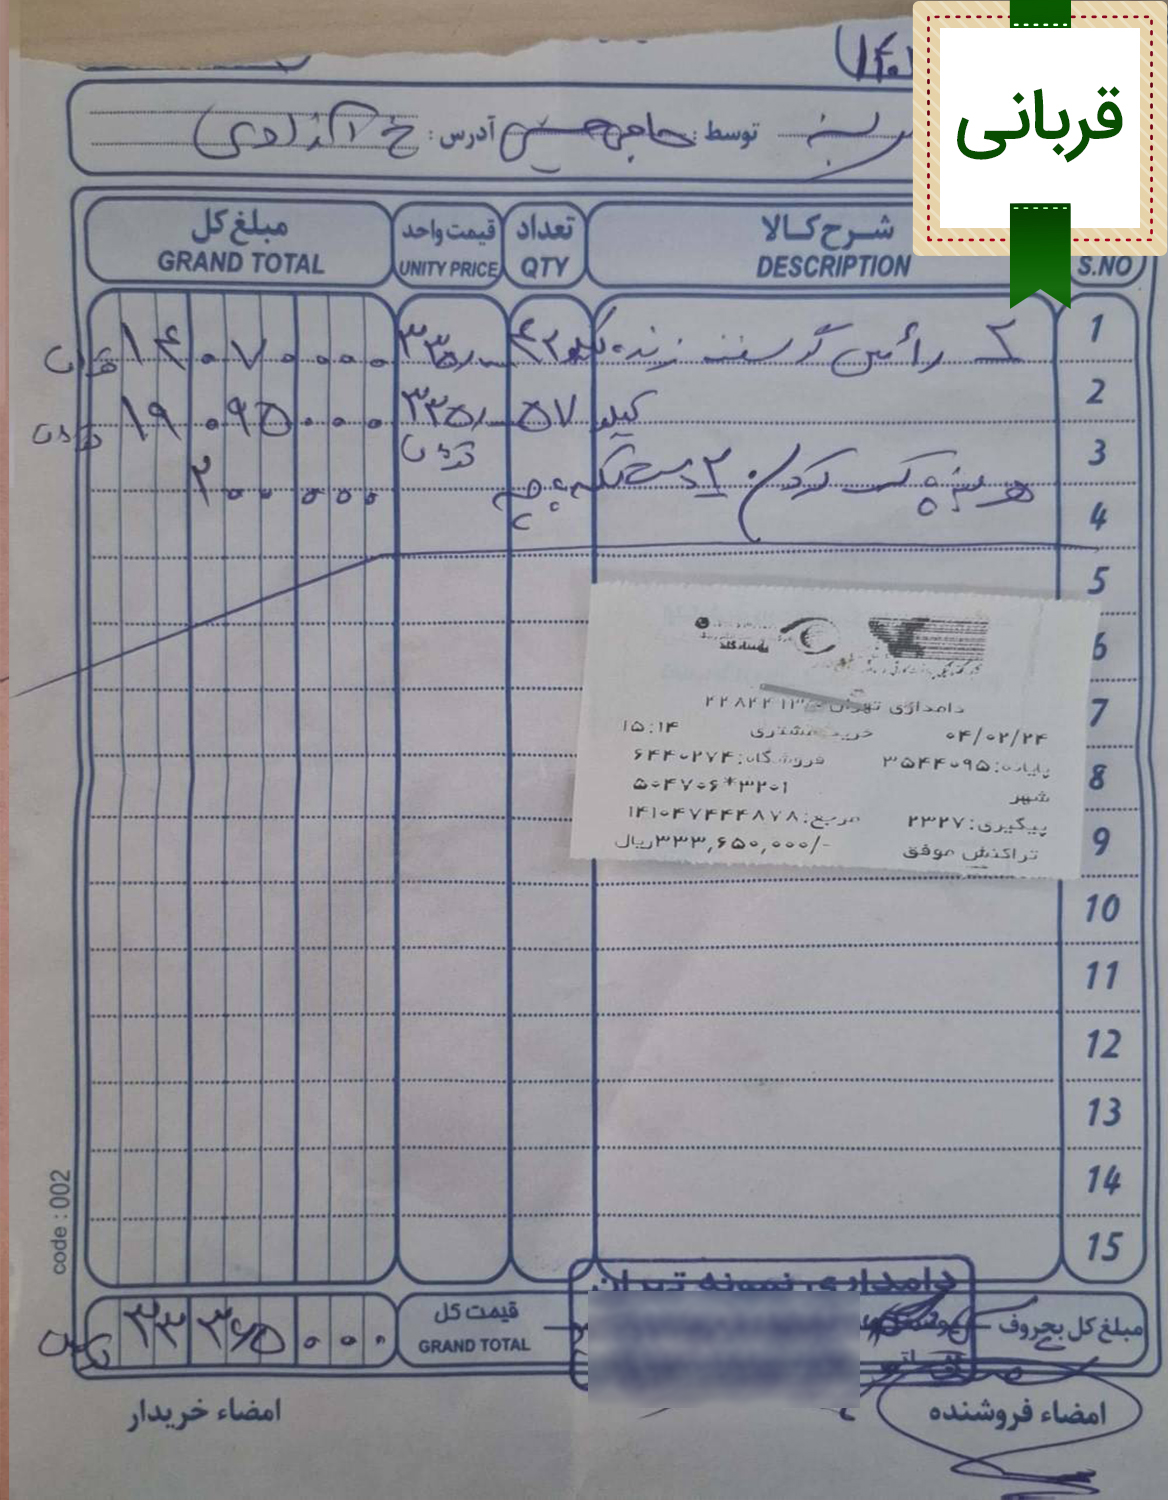 قربانی
توسط: حاجی حسینی آدرس: خ آزادی
شرح کالا تعداد قیمت واحد مبلغ کل
S.NO DESCRIPTION QTY UNITY PRICE GRAND TOTAL
1 ۲ رأس گوسفند زنده کیلو ۴۲ ۳۳۵/۰۰۰ ۱۴۰۷۰۰۰۰ تومان
2 کیلو ۵۷ ۳۳۵/۰۰۰ ۱۹۰۹۵۰۰۰ تومان
3 تومان
4 هزینه پاک کردن ۲ دست کله پاچه ۲۰۰۰۰۰
5
6
7
8
9
10
11
12
13
14
15
دامداری تهران
۰۴/۰۲/۲۴ خرید مشتری ۱۵:۱۴
پایانه:۳۵۴۴۰۹۵ فروشگاه:۶۴۴۰۲۷۴
شهر ۵۰۴۷۰۶*۳۲۰۱
پیگیری:۲۳۲۷ مرجع:۱۴۱۰۴۷۴۴۴۸۷۸
تراکنش موفق ۳۳۳,۶۵۰,۰۰۰/-ریال
code : 002
دامداری نمونه تهران
مبلغ کل بحروف قیمت کل
GRAND TOTAL ۳۳۳۶۵۰۰۰ تومان
امضاء فروشنده امضاء خریدار